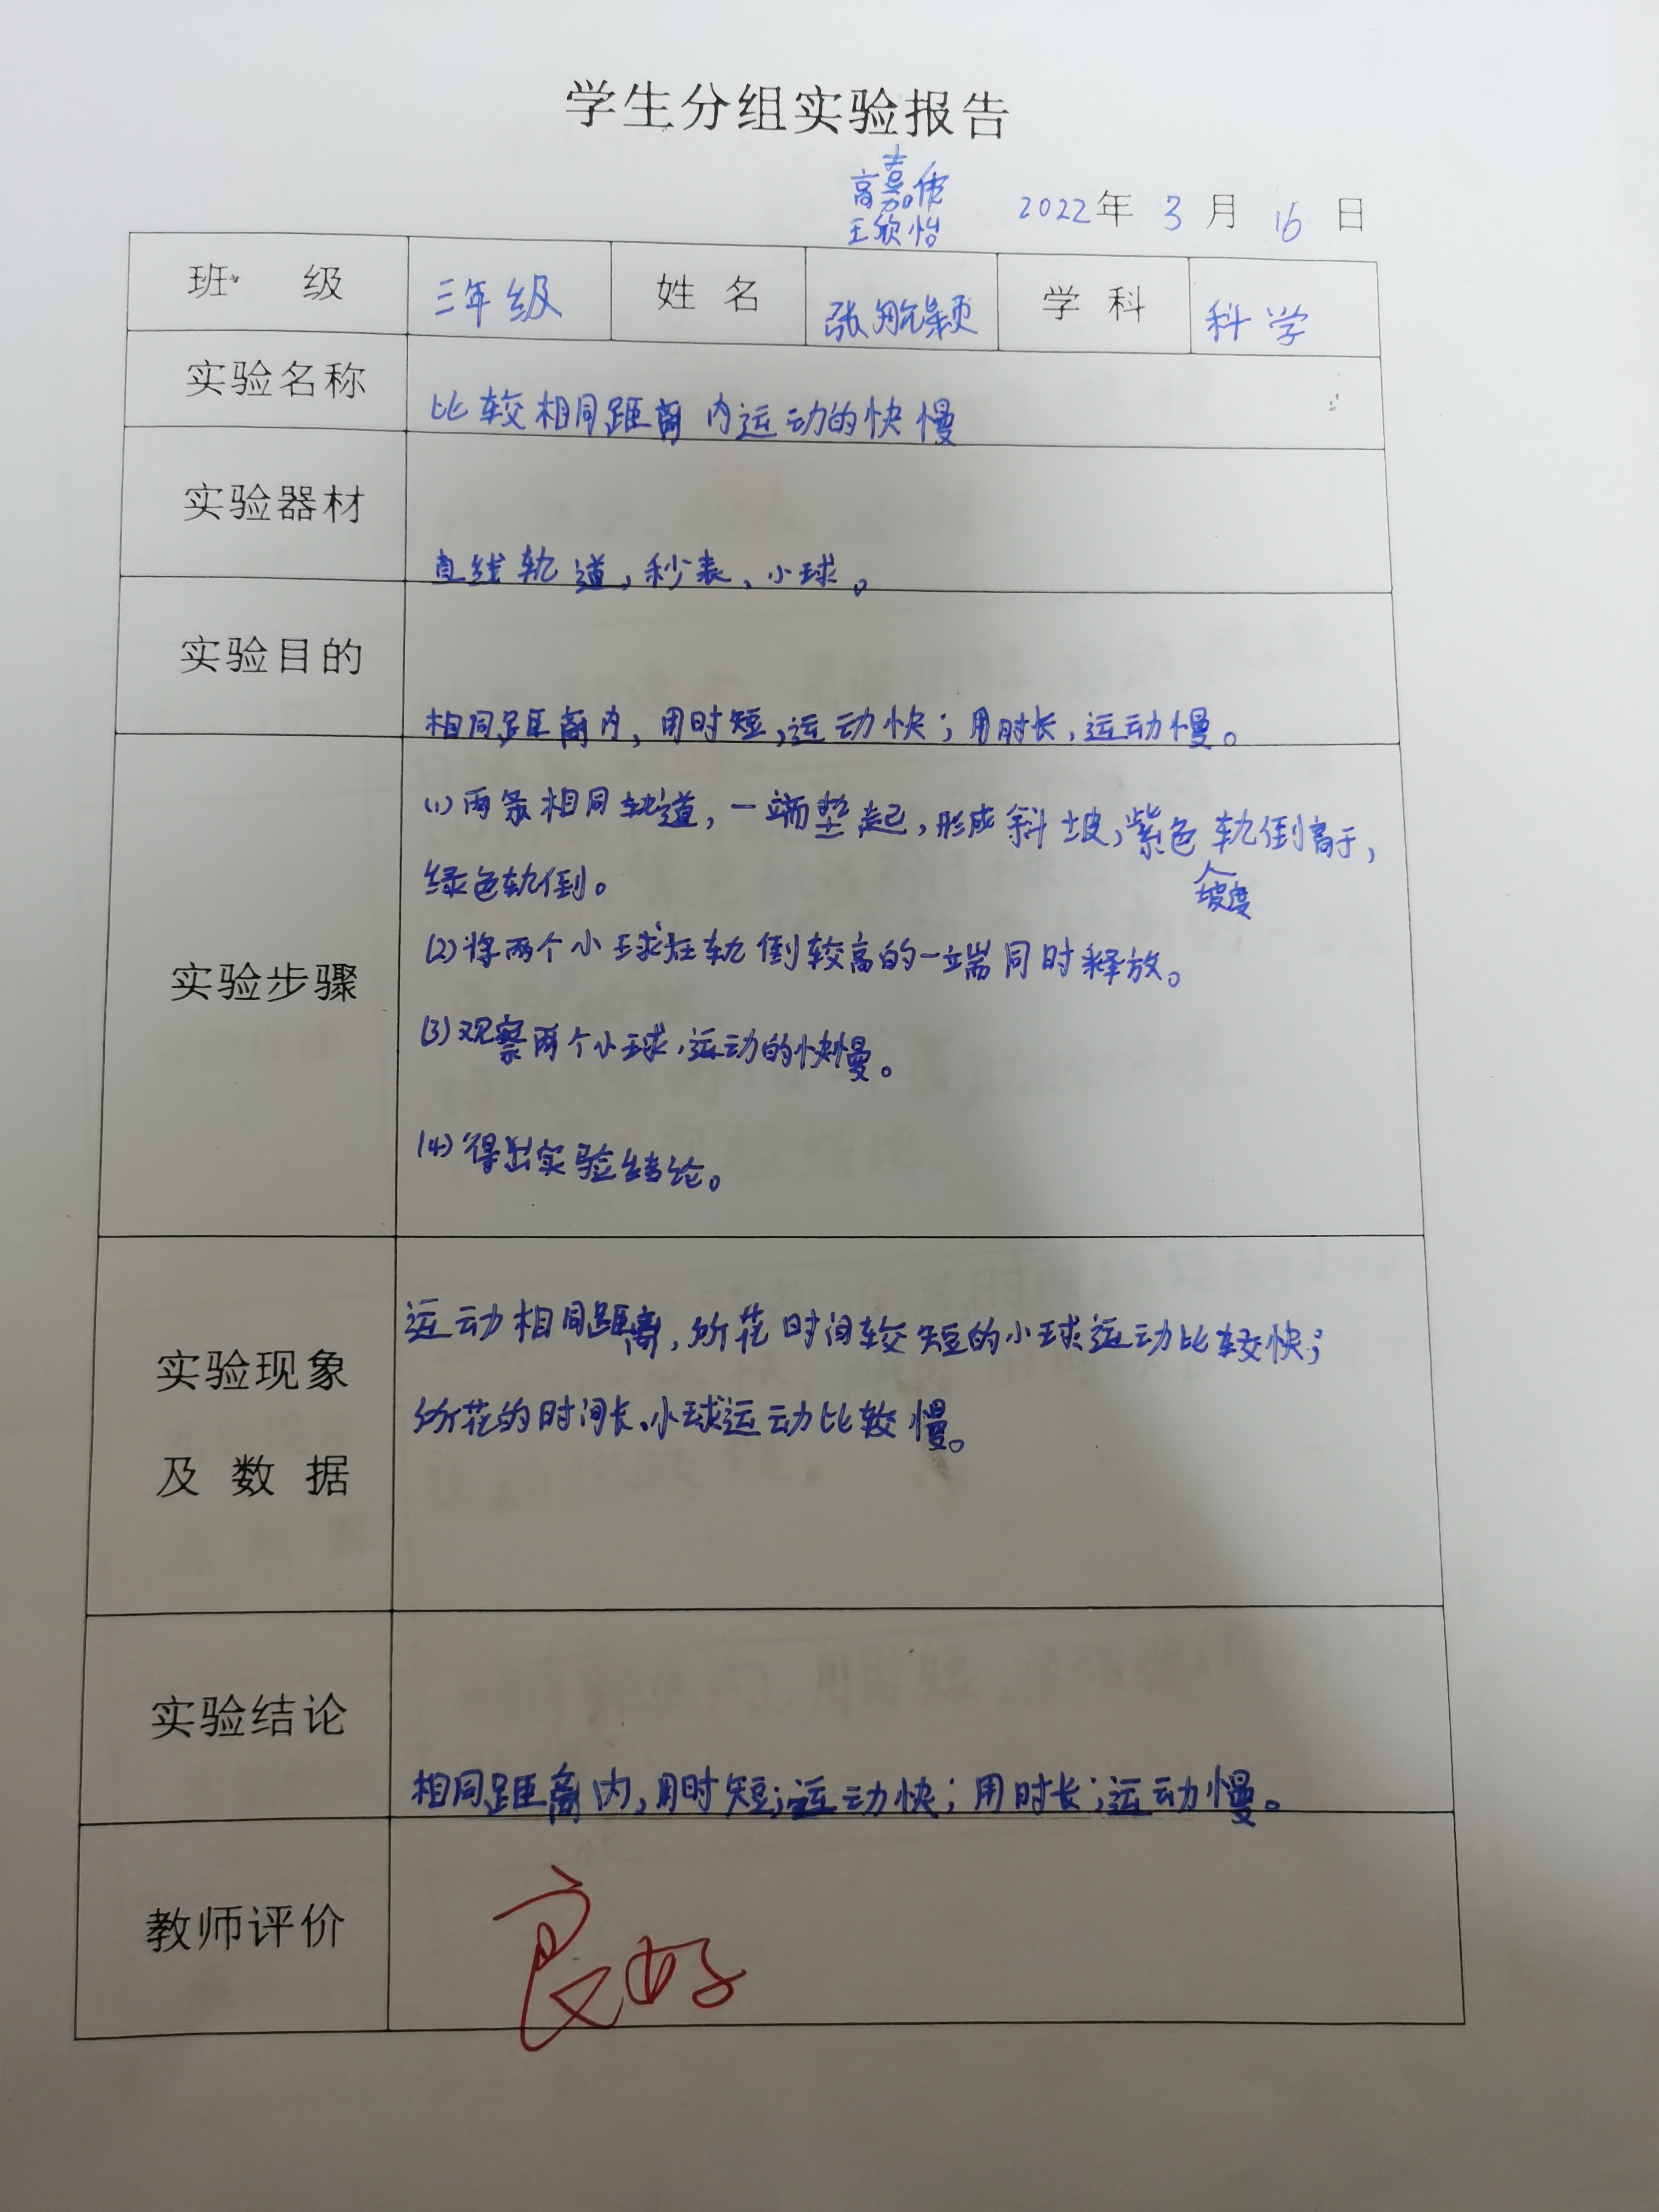 学生分组实验报告
高嘉
王欣怡
2022年 3 月 16 日
班 级 三年级 姓 名 张航颖 学 科 科学
实验名称 比较相同距离内运动的快慢
实验器材 直线轨道，秒表、小球。
实验目的 相同距离内，用时短，运动快；用时长，运动慢。
实验步骤
(1)两条相同轨道，一端垫起，形成斜坡，紫色轨倒高于，
坡度
绿色轨倒。
(2)将两个小球在轨倒较高的一端同时释放。
(3)观察两个小球，运动的快慢。
(4)得出实验结论。
实验现象
及 数 据
运动相同距离，所花时间较短的小球运动比较快；
所花的时间长、小球运动比较慢。
实验结论 相同距离内，用时短；运动快；用时长；运动慢。
教师评价 良好